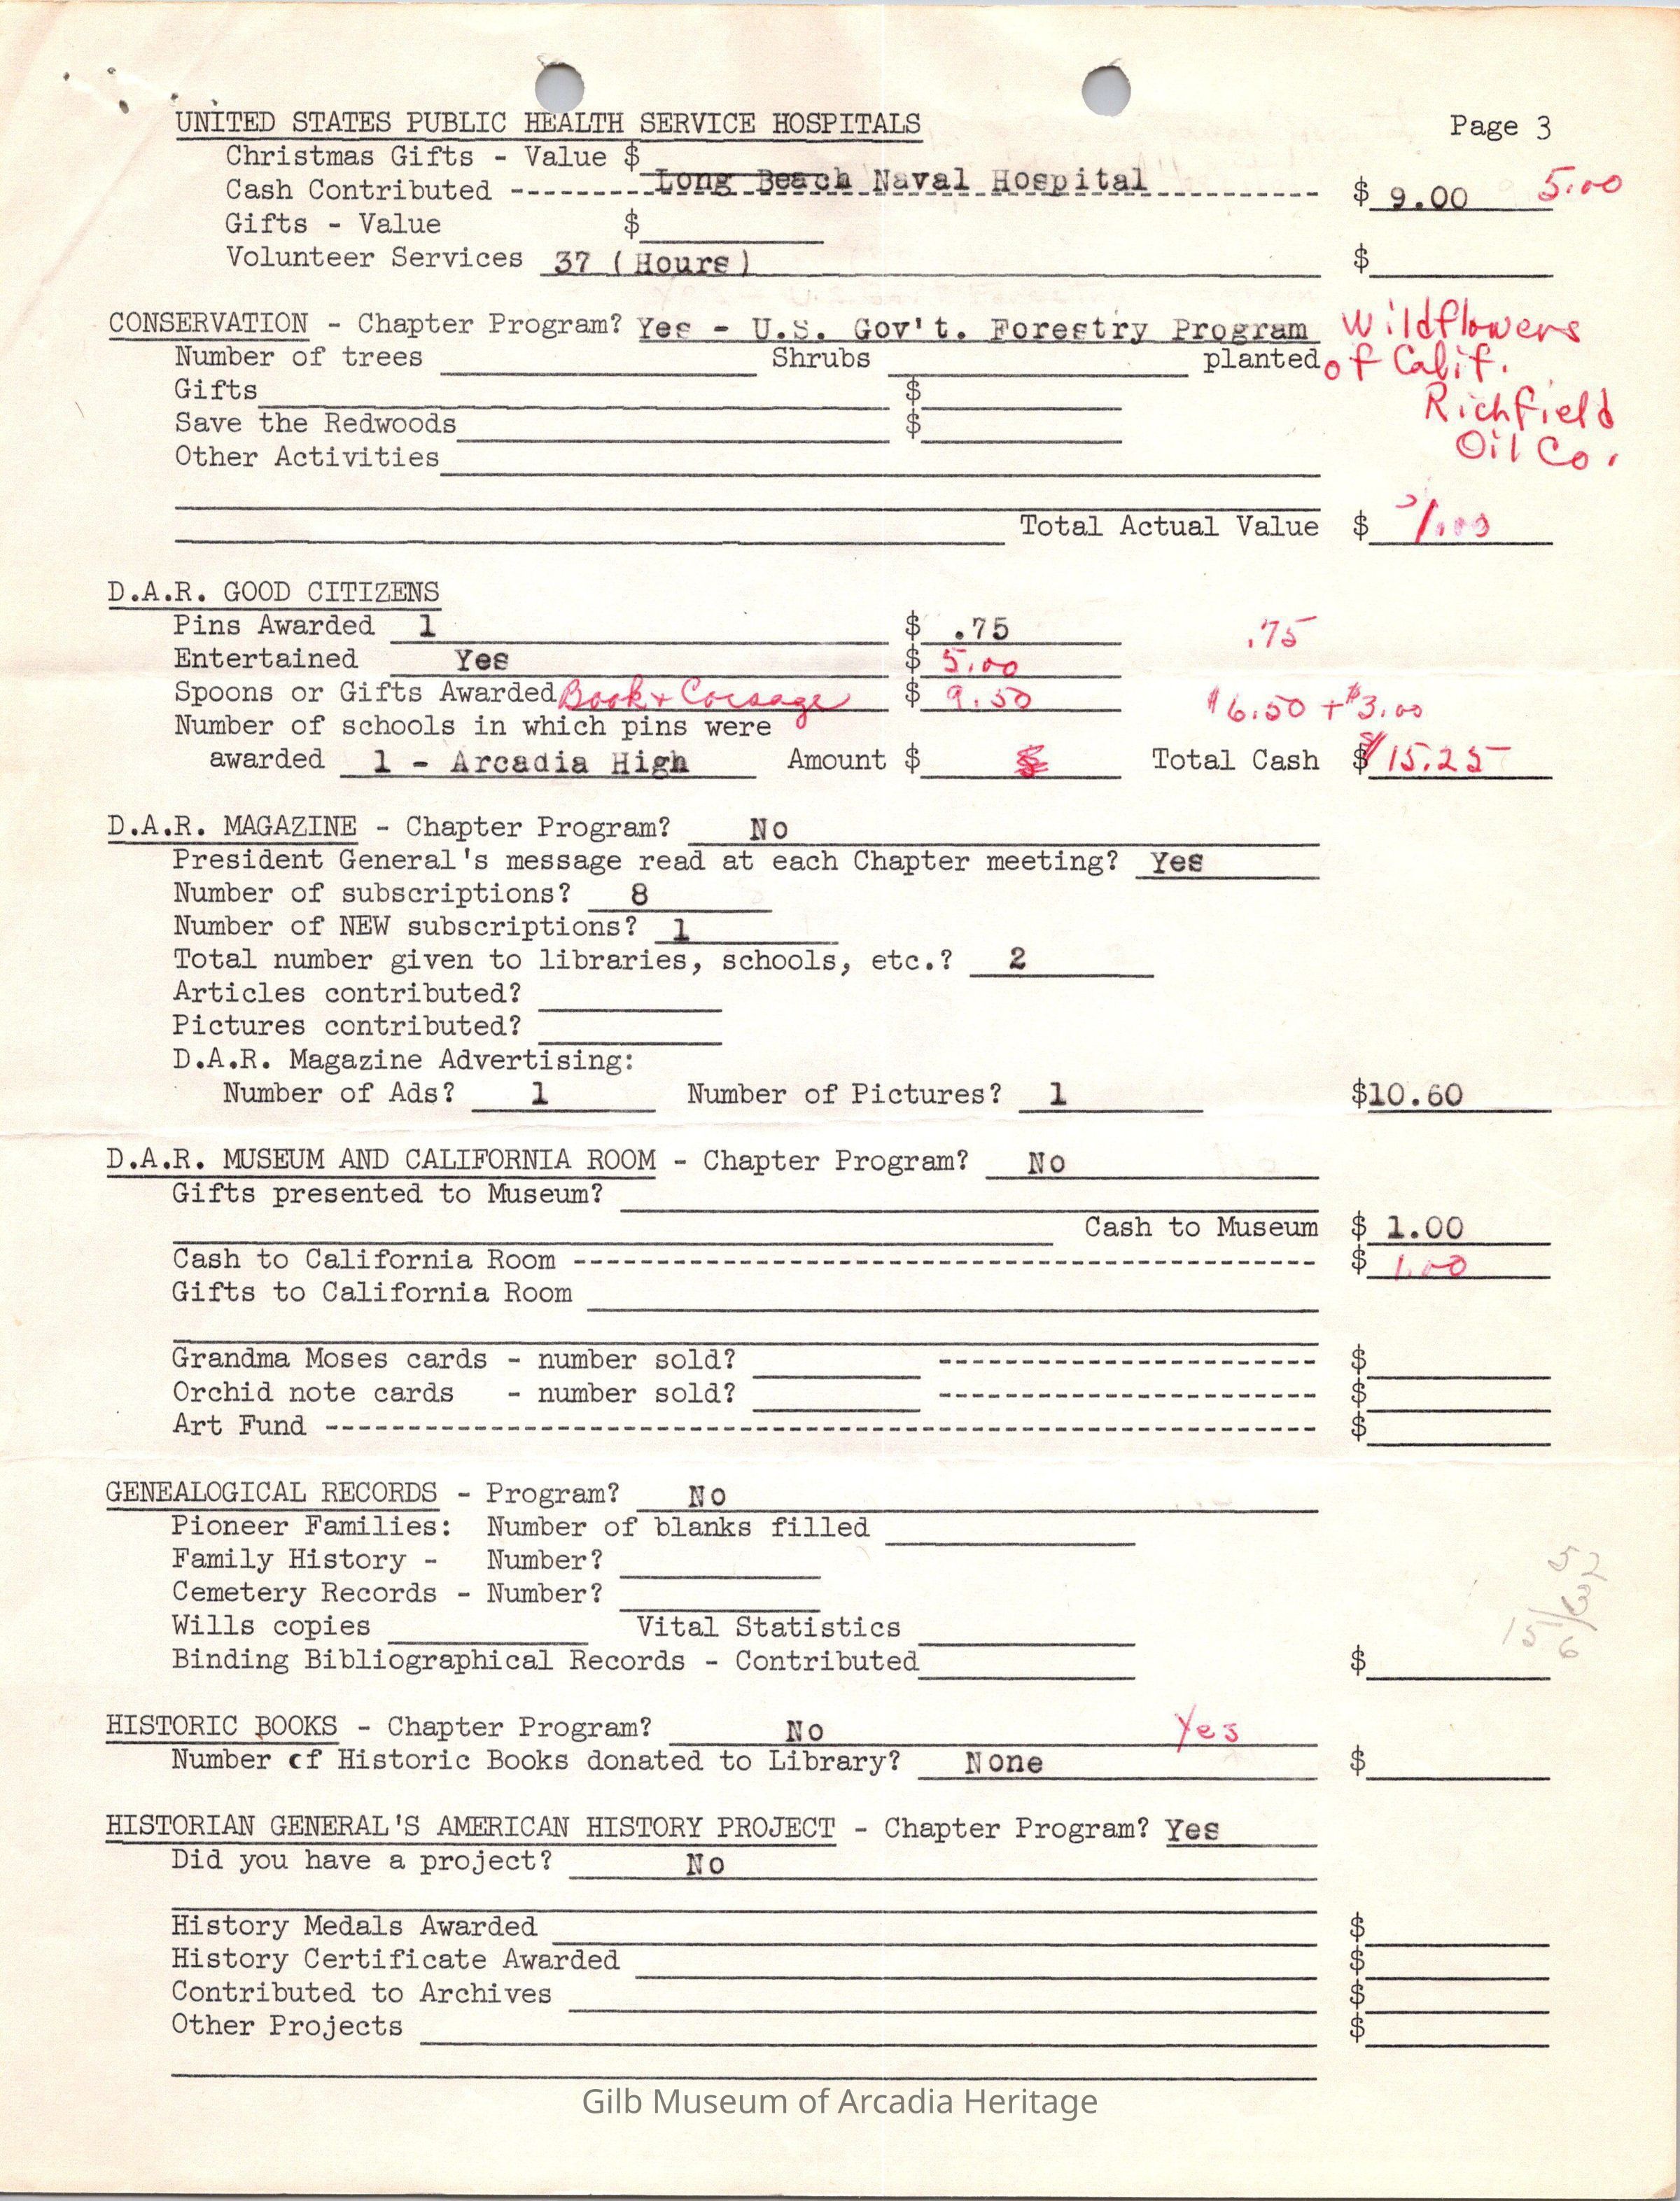 UNITED STATES PUBLIC HEALTH SERVICE HOSPITALS Page 3
Christmas Gifts - Value $
Cash Contributed -------- Long Beach Naval Hospital ---------- $ 9.00 5.00
Gifts - Value $
Volunteer Services 37 (Hours) $
CONSERVATION - Chapter Program? Yes - U.S. Gov't. Forestry Program Wildflowers
Number of trees Shrubs planted of Calif.
Gifts $ Richfield
Save the Redwoods $ Oil Co.
Other Activities
Total Actual Value $
D.A.R. GOOD CITIZENS
Pins Awarded 1 $ .75 .75
Entertained Yes $ 5.00
Spoons or Gifts Awarded Book + Corsage $ 9.50 $6.50 + $3.00
Number of schools in which pins were
awarded 1 - Arcadia High Amount $ Total Cash $ 15.25
D.A.R. MAGAZINE - Chapter Program? No
President General's message read at each Chapter meeting? Yes
Number of subscriptions? 8
Number of NEW subscriptions? 1
Total number given to libraries, schools, etc.? 2
Articles contributed?
Pictures contributed?
D.A.R. Magazine Advertising:
Number of Ads? 1 Number of Pictures? 1 $10.60
D.A.R. MUSEUM AND CALIFORNIA ROOM - Chapter Program? No
Gifts presented to Museum?
Cash to Museum $ 1.00
Cash to California Room ---------- $ 1.00
Gifts to California Room
Grandma Moses cards - number sold? ---------- $
Orchid note cards - number sold? ---------- $
Art Fund ---------- $
GENEALOGICAL RECORDS - Program? No
Pioneer Families: Number of blanks filled
Family History - Number?
Cemetery Records - Number?
Wills copies Vital Statistics
Binding Bibliographical Records - Contributed $
HISTORIC BOOKS - Chapter Program? No Yes
Number of Historic Books donated to Library? None $
HISTORIAN GENERAL'S AMERICAN HISTORY PROJECT - Chapter Program? Yes
Did you have a project? No
History Medals Awarded $
History Certificate Awarded $
Contributed to Archives $
Other Projects $
Gilb Museum of Arcadia Heritage